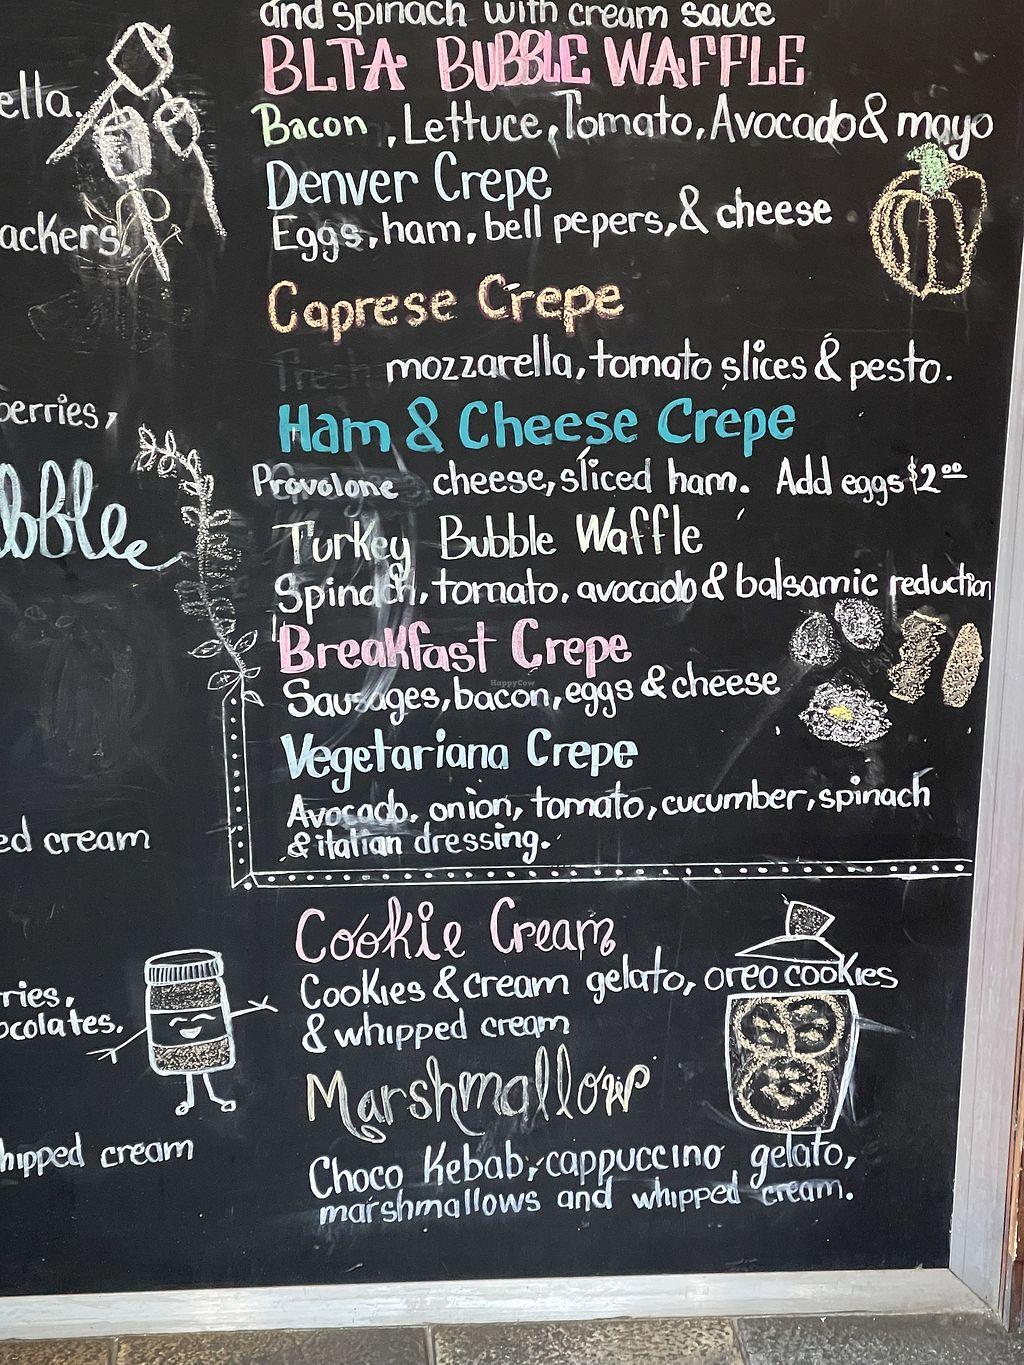 and spinach with cream sauce
BLTA BUBBLE WAFFLE
Bacon, Lettuce, Tomato, Avocado & mayo
Denver Crepe
Eggs, ham, bell pepers, & cheese
Caprese Crepe
Fresh mozzarella, tomato slices & pesto.
Ham & Cheese Crepe
Provolone cheese, sliced ham. Add eggs $2.00
Turkey Bubble Waffle
Spinach, tomato, avocado & balsamic reduction
Breakfast Crepe
Sausages, bacon, eggs & cheese
Vegetariana Crepe
Avocado, onion, tomato, cucumber, spinach
& italian dressing.
Cookie Cream
Cookies & cream gelato, oreo cookies
& whipped cream
Marshmallow
Choco Kebab, cappuccino gelato,
marshmallows and whipped cream.
ella.
ackers.
berries,
bble
ed cream
ries,
ocolates.
hipped cream
HappyCow